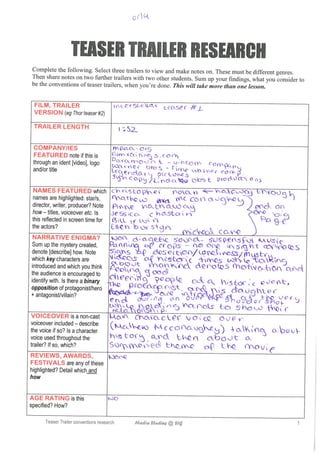 TEASER TRAILER RESEARCH
Complete the following. Select three trailers to view and make notes on. These must be different genres.
Then share notes on two further trailers with two other students. Sum up your findings, what you consider to
be the conventions of teaser trailers, when you're done. This will take more than one lesson.
FILM, TRAILER
VERSION (eg Thor teaser #2)
interstellar teaser #1
TRAILER LENGTH
1:52
COMPANY/IES
FEATURED note if this is
through an ident [video], logo
and/or title
mpaa.org
filmratings.com
Paramount - viacom company
warner bros - time warner comp
Legendary pictures
Syncopy / Lynda obst productions
NAMES FEATURED which
names are highlighted: star/s,
director, writer, producer? Note
how – titles, voiceover etc. Is
this reflected in screen time for
the actors?
christopher nolan ← halfway through
mathew mc conaughey
Anne hathaway
Jessica chastain
Bill irwin
ellen burstyn
michael caine
end on
one big
page
NARRATIVE ENIGMA?
Sum up the mystery created,
denote [describe] how. Note
which key characters are
introduced and which you think
the audience is encouraged to
identify with. Is there a binary
opposition of protagonist/hero
+ antagonist/villain?
non diagetic sound - suspensful music
Panning of crops - no one insight connotes
signs of desertery/loneliness/mystry.
videos of historic times while talking
about mankind denotes motivation and
feeling good
cheering people at a historic event,
the protagonist and his daughter
and driving on
while holding hands to show their
relationship
VOICEOVER is a non-cast
voiceover included – describe
the voice if so? Is a character
voice used throughout the
trailer? If so, which?
Main character voice over
(Mathew Mcconaughey) talking about
history and then about a
summerised theme of the movie
REVIEWS, AWARDS,
FESTIVALS are any of these
highlighted? Detail which and
how
None
AGE RATING is this
specified? How?
NO
Teaser Trailer conventions research
Media Studies @ StG
1